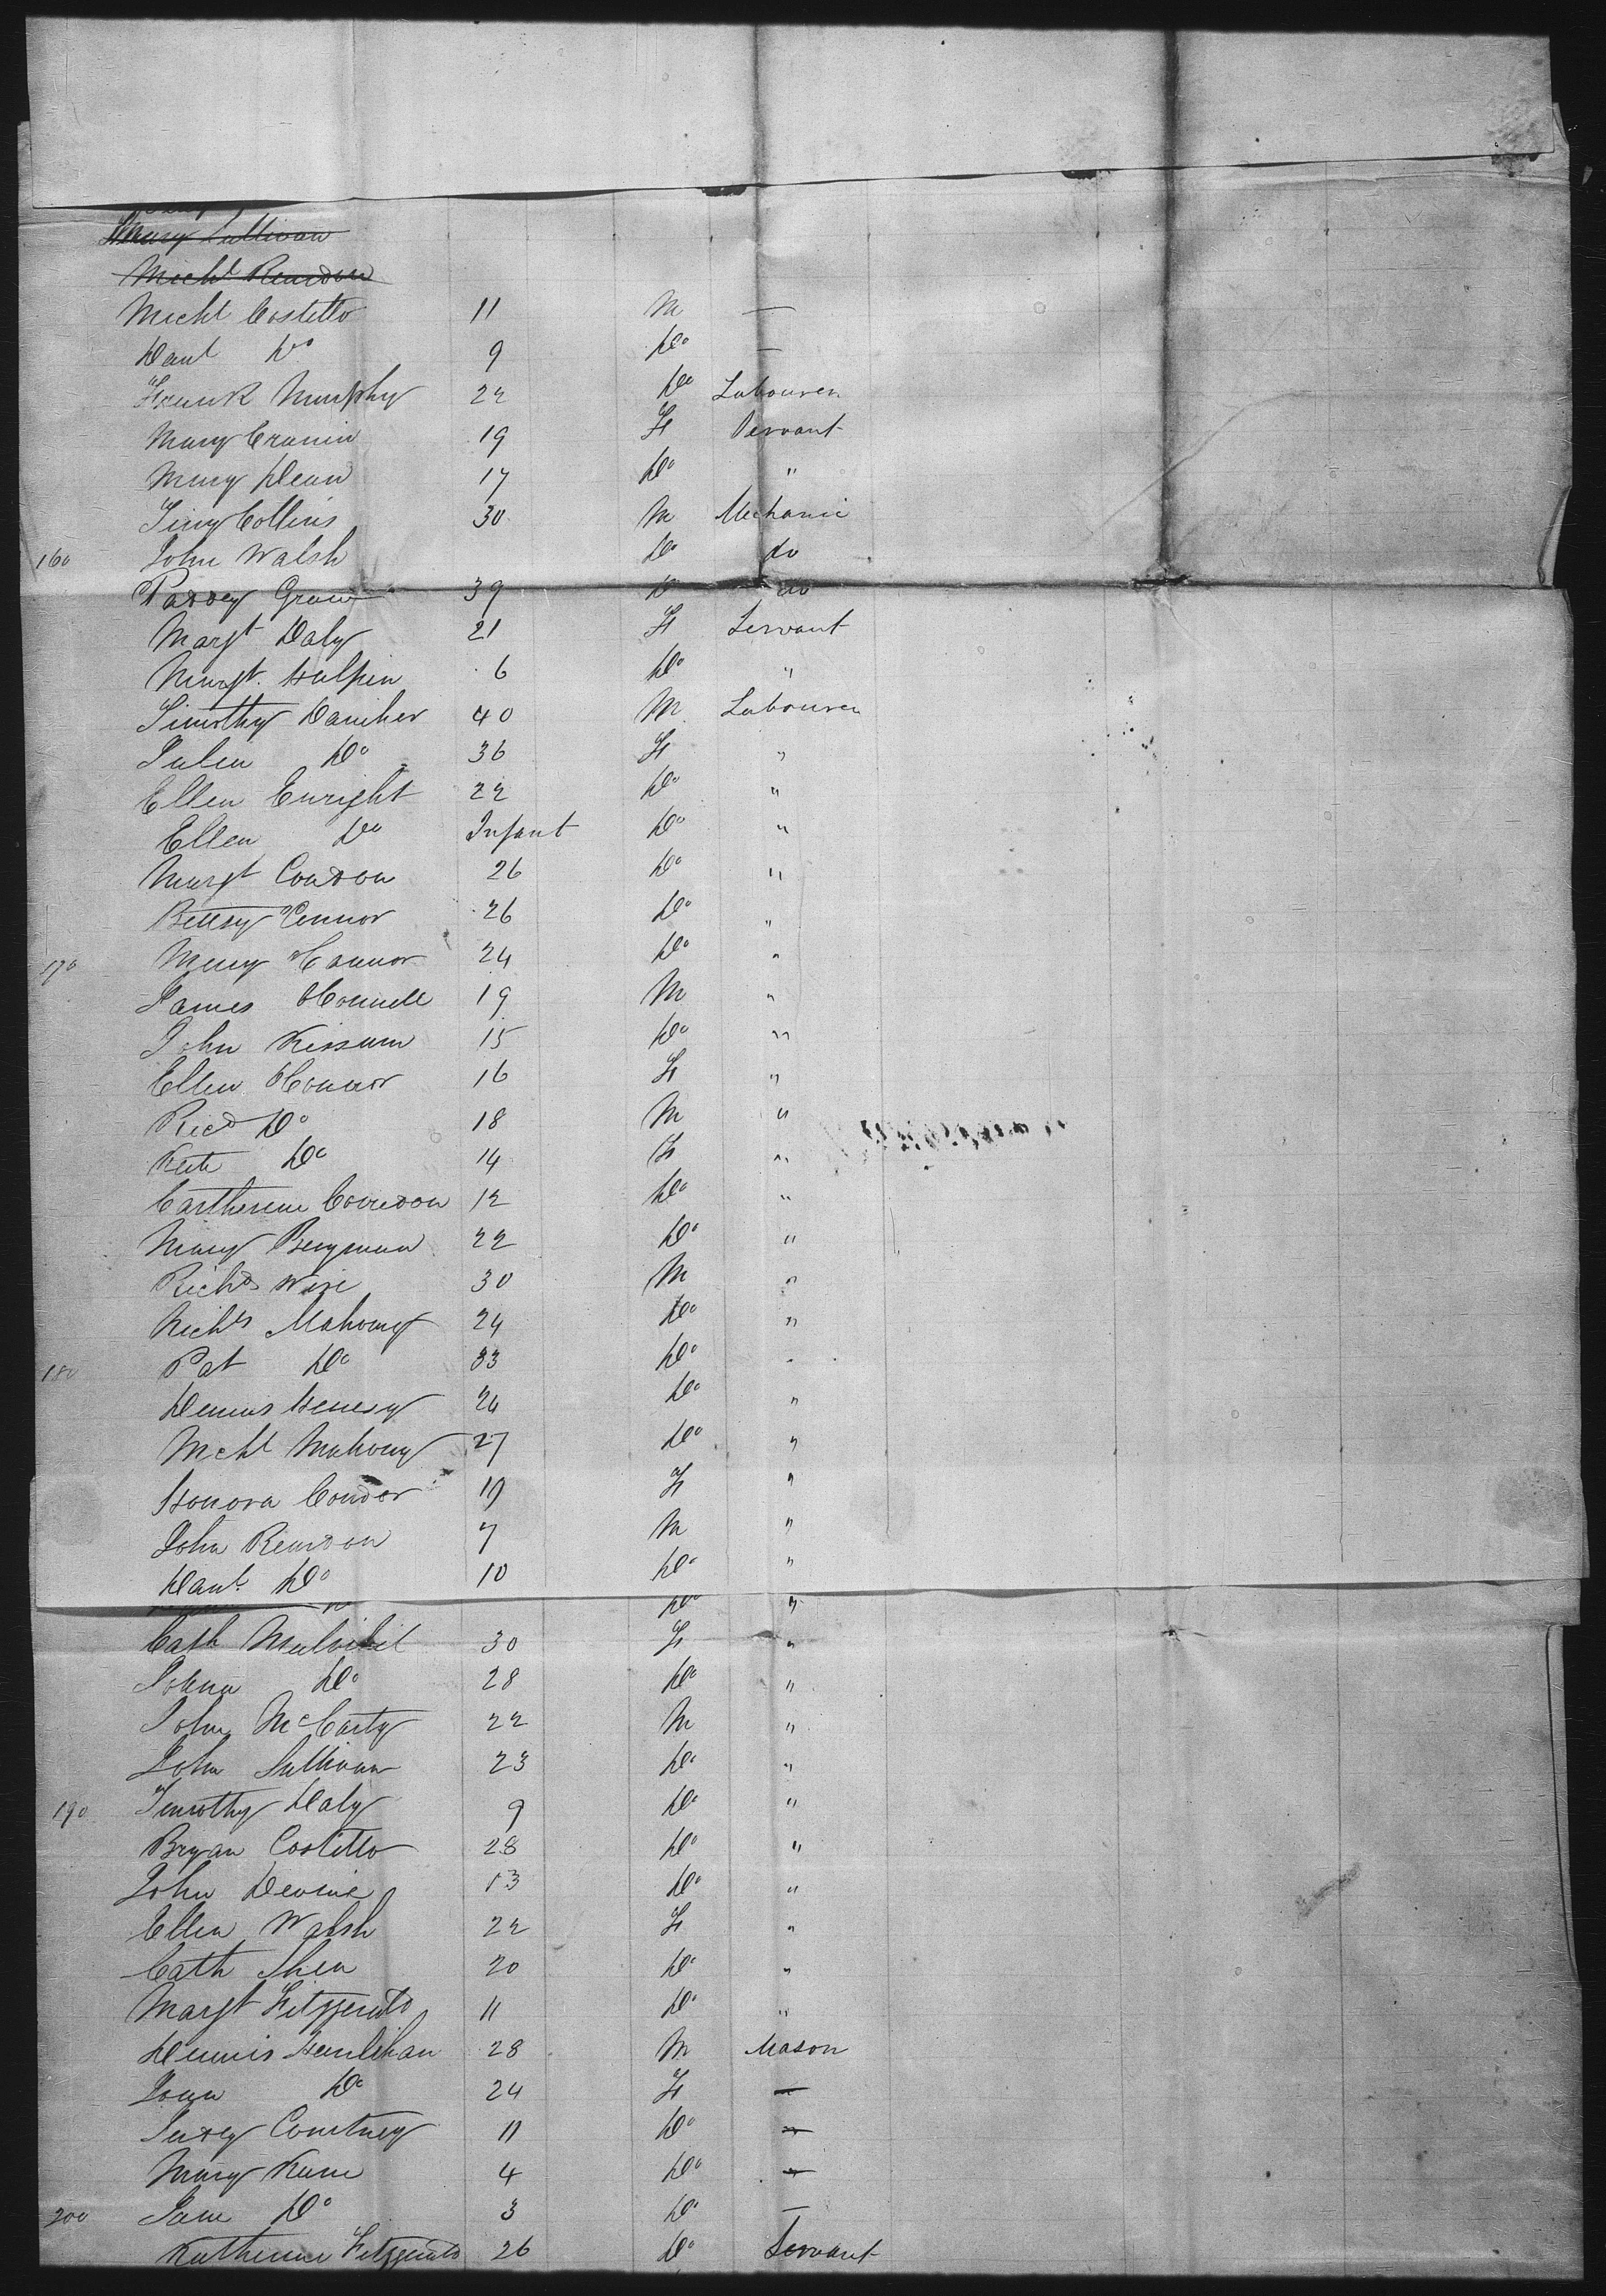 Mary Sullivan
Michl Reardon
Michl Costello 11 M —
Danl Do 9 Do —
Frank Murphy 22 Do Labourer
Mary Cronin 19 F Servant
Mary Dean 17 Do "
Timy Collins 30 M Mechanic
160 John Walsh Do do
Paddy 39 Do do
Margt Daly 21 F Servant
Margt. Halpin 6 Do "
Timothy Daniher 40 M Labourer
Julia Do 36 F "
Ellen Enright 22 Do "
Ellen Do Infant Do "
Margt Condon 26 Do "
Betsy Connor 26 Do "
170 Mary Connor 24 Do "
James OConnell 19 M "
John 15 Do "
Ellen OConnor 16 F "
Ricd Do 18 M "
Kate Do 14 F "
12 Do "
Mary 22 Do "
Richd Wise 30 M "
Nichls Mahony 24 Do "
180 Pat Do 33 Do "
Dennis Henesy 24 Do "
Michl Mahony 27 Do "
Honora Condon 19 F "
John Reardon 7 M "
Danl Do 10 Do "
Do Do "
Cath 30 F "
Johna Do 28 Do "
John McCarty 22 M "
John Sullivan 23 Do "
190 Timothy Daly 9 Do "
Bryan Costello 28 Do "
John Devine 13 Do "
Ellen Walsh 22 F "
Cath Shea 20 Do "
Margt Fitzgerald 11 Do "
Dennis Hanlihan 28 M Mason
Joan Do 24 F —
Judy Courtney 11 Do —
Mary Kane 4 Do —
200 Jane Do 3 Do —
Katherine Fitzgerald 26 Do Servant